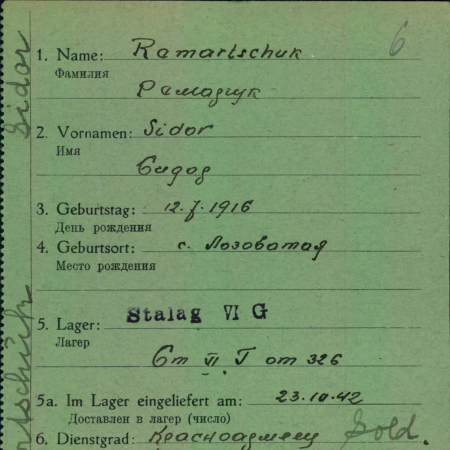 6
1. Name: Ramartschuk
Фамилия
Рамарчук
2. Vornamen: Sidor
Имя
Сидор
3. Geburtstag: 12.7.1916
День рождения
4. Geburtsort: с. Лозоватая
Место рождения
5. Lager: Stalag VI G
Лагер
от 326
5a. Im Lager eingeliefert am: 23.10.42
Доставлен в лагер (число)
6. Dienstgrad: Красноармеец Sold.
Sidor